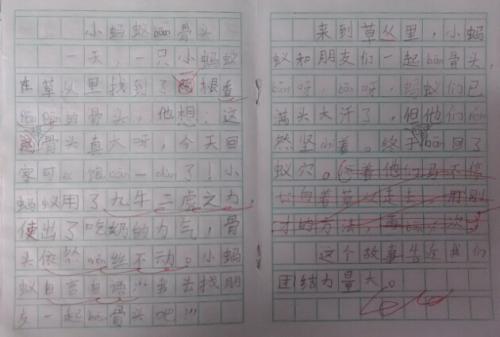 小蚂蚁bān骨头
一天，一只小蚂蚁
在草丛里找到了一根香
喷喷的骨头，他想：这
骨头真大呀，今天回
家可以饱cān一dùn了！小
蚂蚁用了九牛二虎之力，
使出了吃奶的力气，骨
头依然sī丝不动。小蚂
蚁自言自语：“我去找朋
友一起bān骨头吧！”
来到草丛里，小蚂
蚁和朋友们一起bān骨头，
bān呀，bān呀，蚂蚁们已
满头大汗了，但他们réng
然坚chí着。终于bān回了
蚁穴。
这个故事告诉我们
团结力量大。